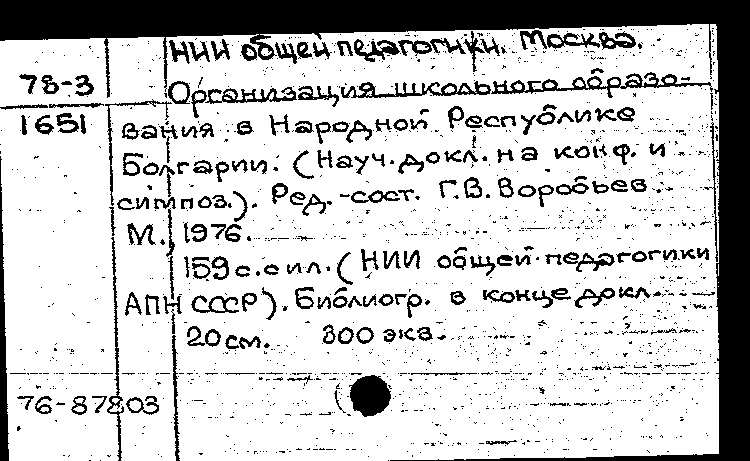 НИИ общей педагогики. Москва.
78-3
Организация школьного образо-
1651
вания в Народной Республике
Болгарии. (Науч. докл. на конф. и
симпоз.). Ред.-сост. Г.В. Воробьев.
М., 1976.
159 с. с ил. (НИИ общей педагогики
АПН СССР). Библиогр. в конце докл.
20 см. 300 экз.
76-87803